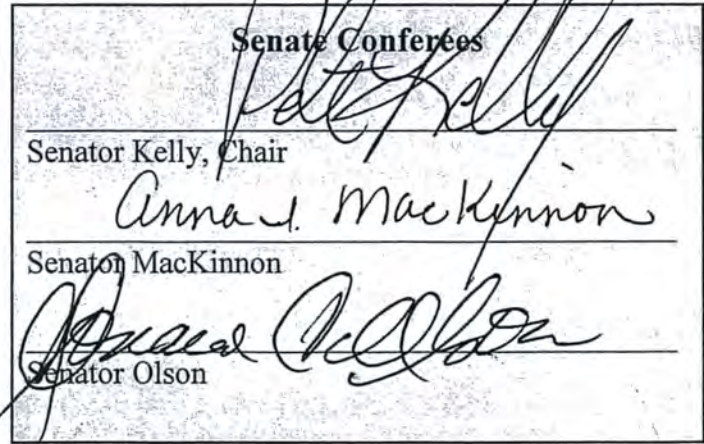 Senate Conferees
Pete Kelly
Senator Kelly, Chair
Anna I. MacKinnon
Senator MacKinnon
Donald C. Olson
Senator Olson